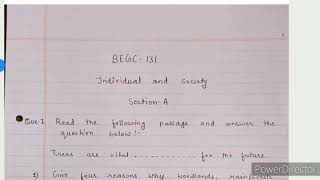 BEGC-131
Individual and society
Section-A
Que-1 Read the following passage and answer the
question below :-
Trees are vital .............. for the future
1) Give four reasons why woodlands, rainforests
PowerDirector